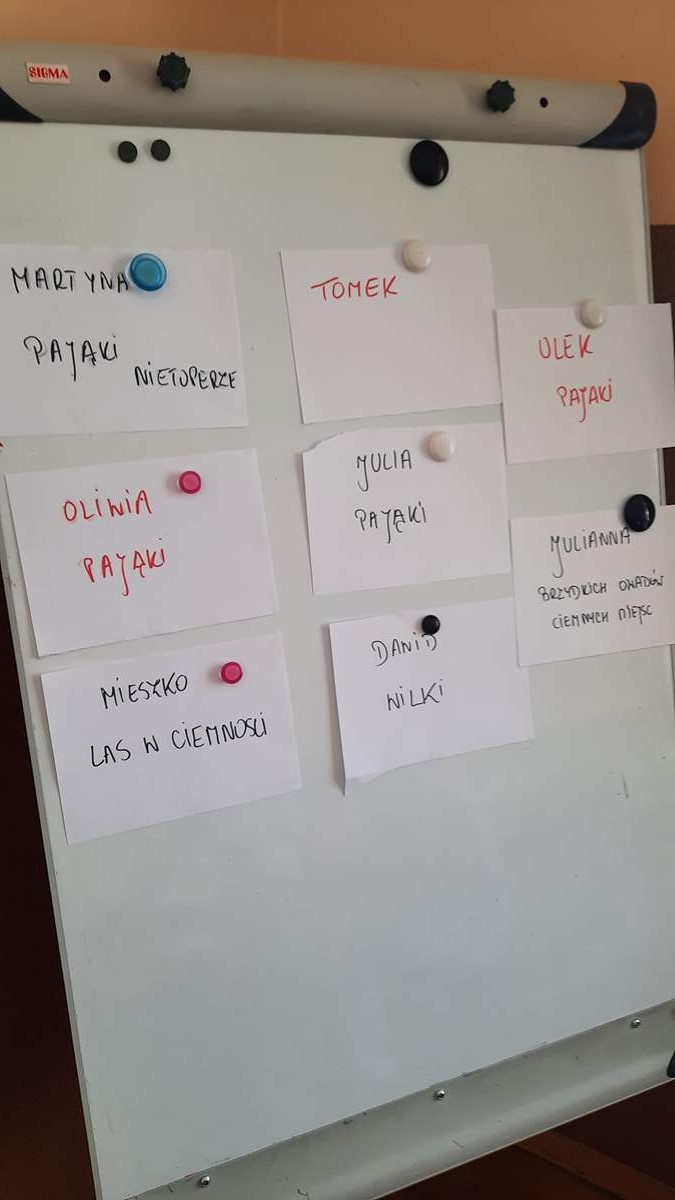 SIGMA
MARTYNA
PAJĄKI
NIETOPERZE
TOMEK
OLEK
PAJAKI
OLIWIA
PAJĄKI
JULIA
PAJĄKI
JULIANNA
BRZYDKICH OWADÓW
CIEMNYCH MIEJSC
MIESZKO
LAS W CIEMNOŚCI
DAWID
WILKI